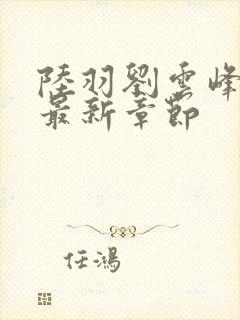 陸羽劉雲峰
最新章節
任鴻